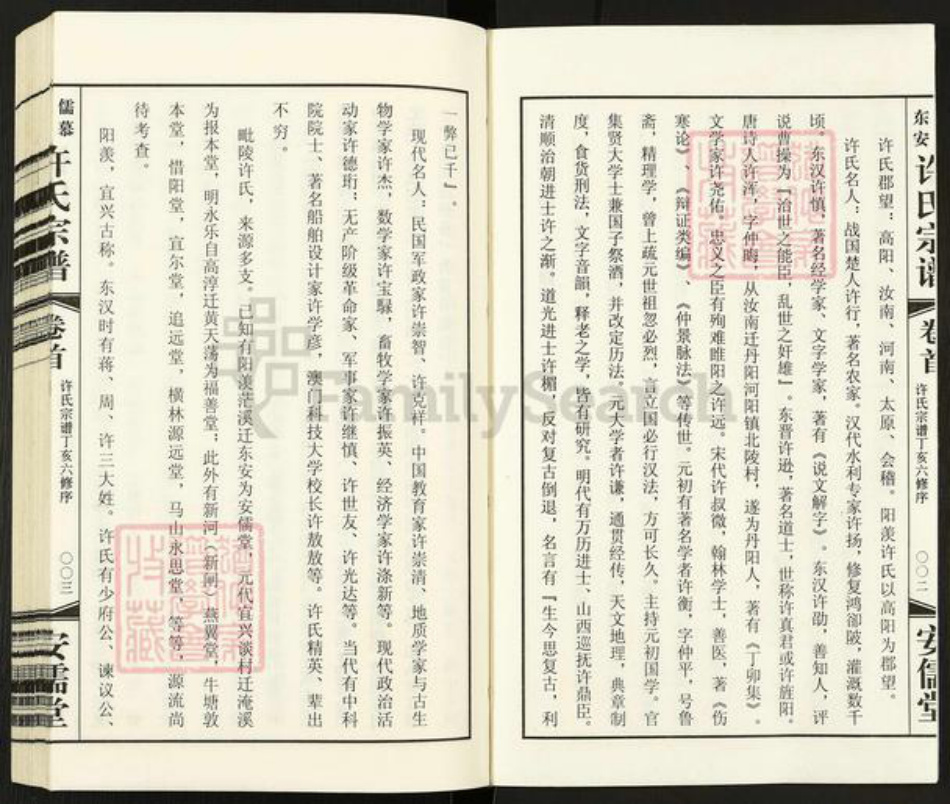 东安 许氏宗谱 卷首 许氏宗谱丁亥六修序 〇〇二 安儒堂
许氏郡望:高阳、汝南、河南、太原、会稽。阳羡许氏以高阳为郡望。
许氏名人:战国楚人许行,著名农家。汉代水利专家许扬,修复鸿郤陂,灌溉数千
顷。东汉许慎,著名经学家、文字学家,著有《说文解字》。东汉许劭,善知人,评
说曹操为『治世之能臣,乱世之奸雄』。东晋许逊,著名道士,世称许真君或许旌阳。
唐诗人许浑,字仲晦,从汝南迁丹阳河阳镇北陵村,遂为丹阳人,著有《丁卯集》。
文学家许尧佑。忠义之臣有殉难睢阳之许远。宋代许叔微,翰林学士,善医,著《伤
寒论》、《辩证类编》、《仲景脉法》等传世。元初有著名学者许衡,字仲平,号鲁
斋,精理学,曾上疏元世祖忽必烈,言立国必行汉法,方可长久。主持元初国学。官
集贤大学士兼国子祭酒,并改定历法。元大学者许谦,通贯经传,天文地理,典章制
度,食货刑法,文字音韻,释老之学,皆有研究。明代有万历进士、山西巡抚许鼎臣。
清顺治朝进士许之渐。道光进士许楣、反对复古倒退,名言有『生今思复古,利
一弊已千』。
现代名人:民国军政家许崇智、许克祥。中国教育家许崇清、地质学家与古生
物学家许杰,数学家许宝騄,畜牧学家许振英、经济学家许涤新等。现代政治活
动家许德珩;无产阶级革命家、军事家许继慎、许世友、许光达等。当代有中科
院院士、著名船舶设计家许学彦,澳门科技大学校长许敖敖等。许氏精英、辈出
不穷。
毗陵许氏,来源多支。已知有阳羡茫溪迁东安为安儒堂,元代宜兴谈村迁淹溪
为报本堂,明永乐自高淳迁黄天荡为福善堂;此外有新河(新闸)燕翼堂,牛塘敦
本堂,惜阳堂,宜尔堂,追远堂,横林源远堂,马山永思堂,等等,源流尚
待考查。
阳羡,宜兴古称。东汉时有蒋、周、许三大姓。许氏有少府公、谏议公、
儒慕 许氏宗谱 卷首 许氏宗谱丁亥六修序 〇〇三 安儒堂
FamilySearch